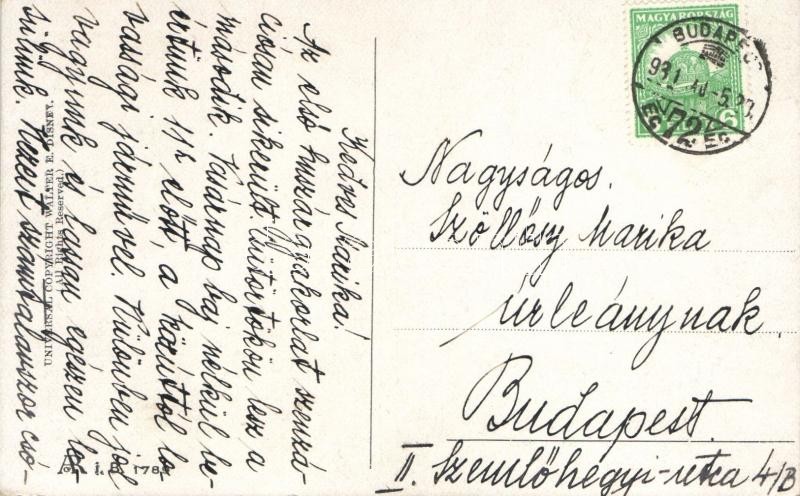 Kedves Marika!
Az első huszárgyakorlat szenzá-
ciósan sikerült. Csütörtökön lesz a
második. Vasárnap baj nélkül
értünk 11h előtt, a
vassági járművel. Különben jól
vagyunk és lassan egészen
sülünk. Kezeit számtalanszor csó-
UNIVERSAL COPYRIGHT WALTER E. DISNEY.
(All Rights Reserved.)
A. R. i. B. 1783
MAGYARORSZÁG
BUDAPEST
931
72
6
Nagyságos
Szöllősy Marika
úrleánynak.
Budapest.
II. Szemlőhegyi-utca 4/B